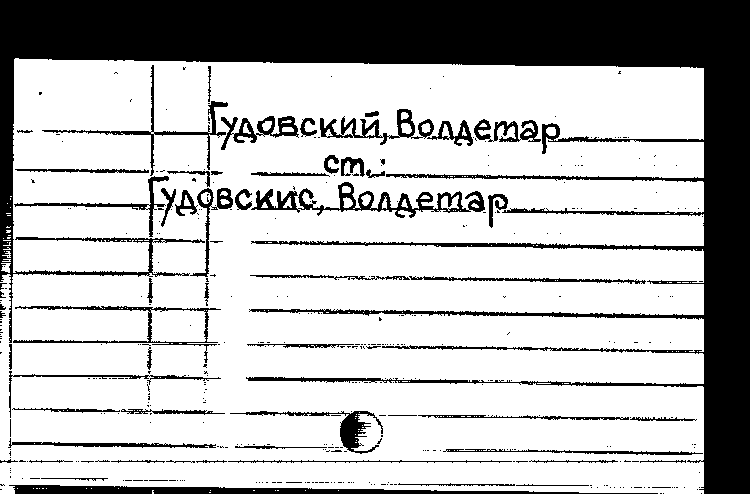 Гудовский, Волдетар
ст.:
Гудовскис, Волдетар